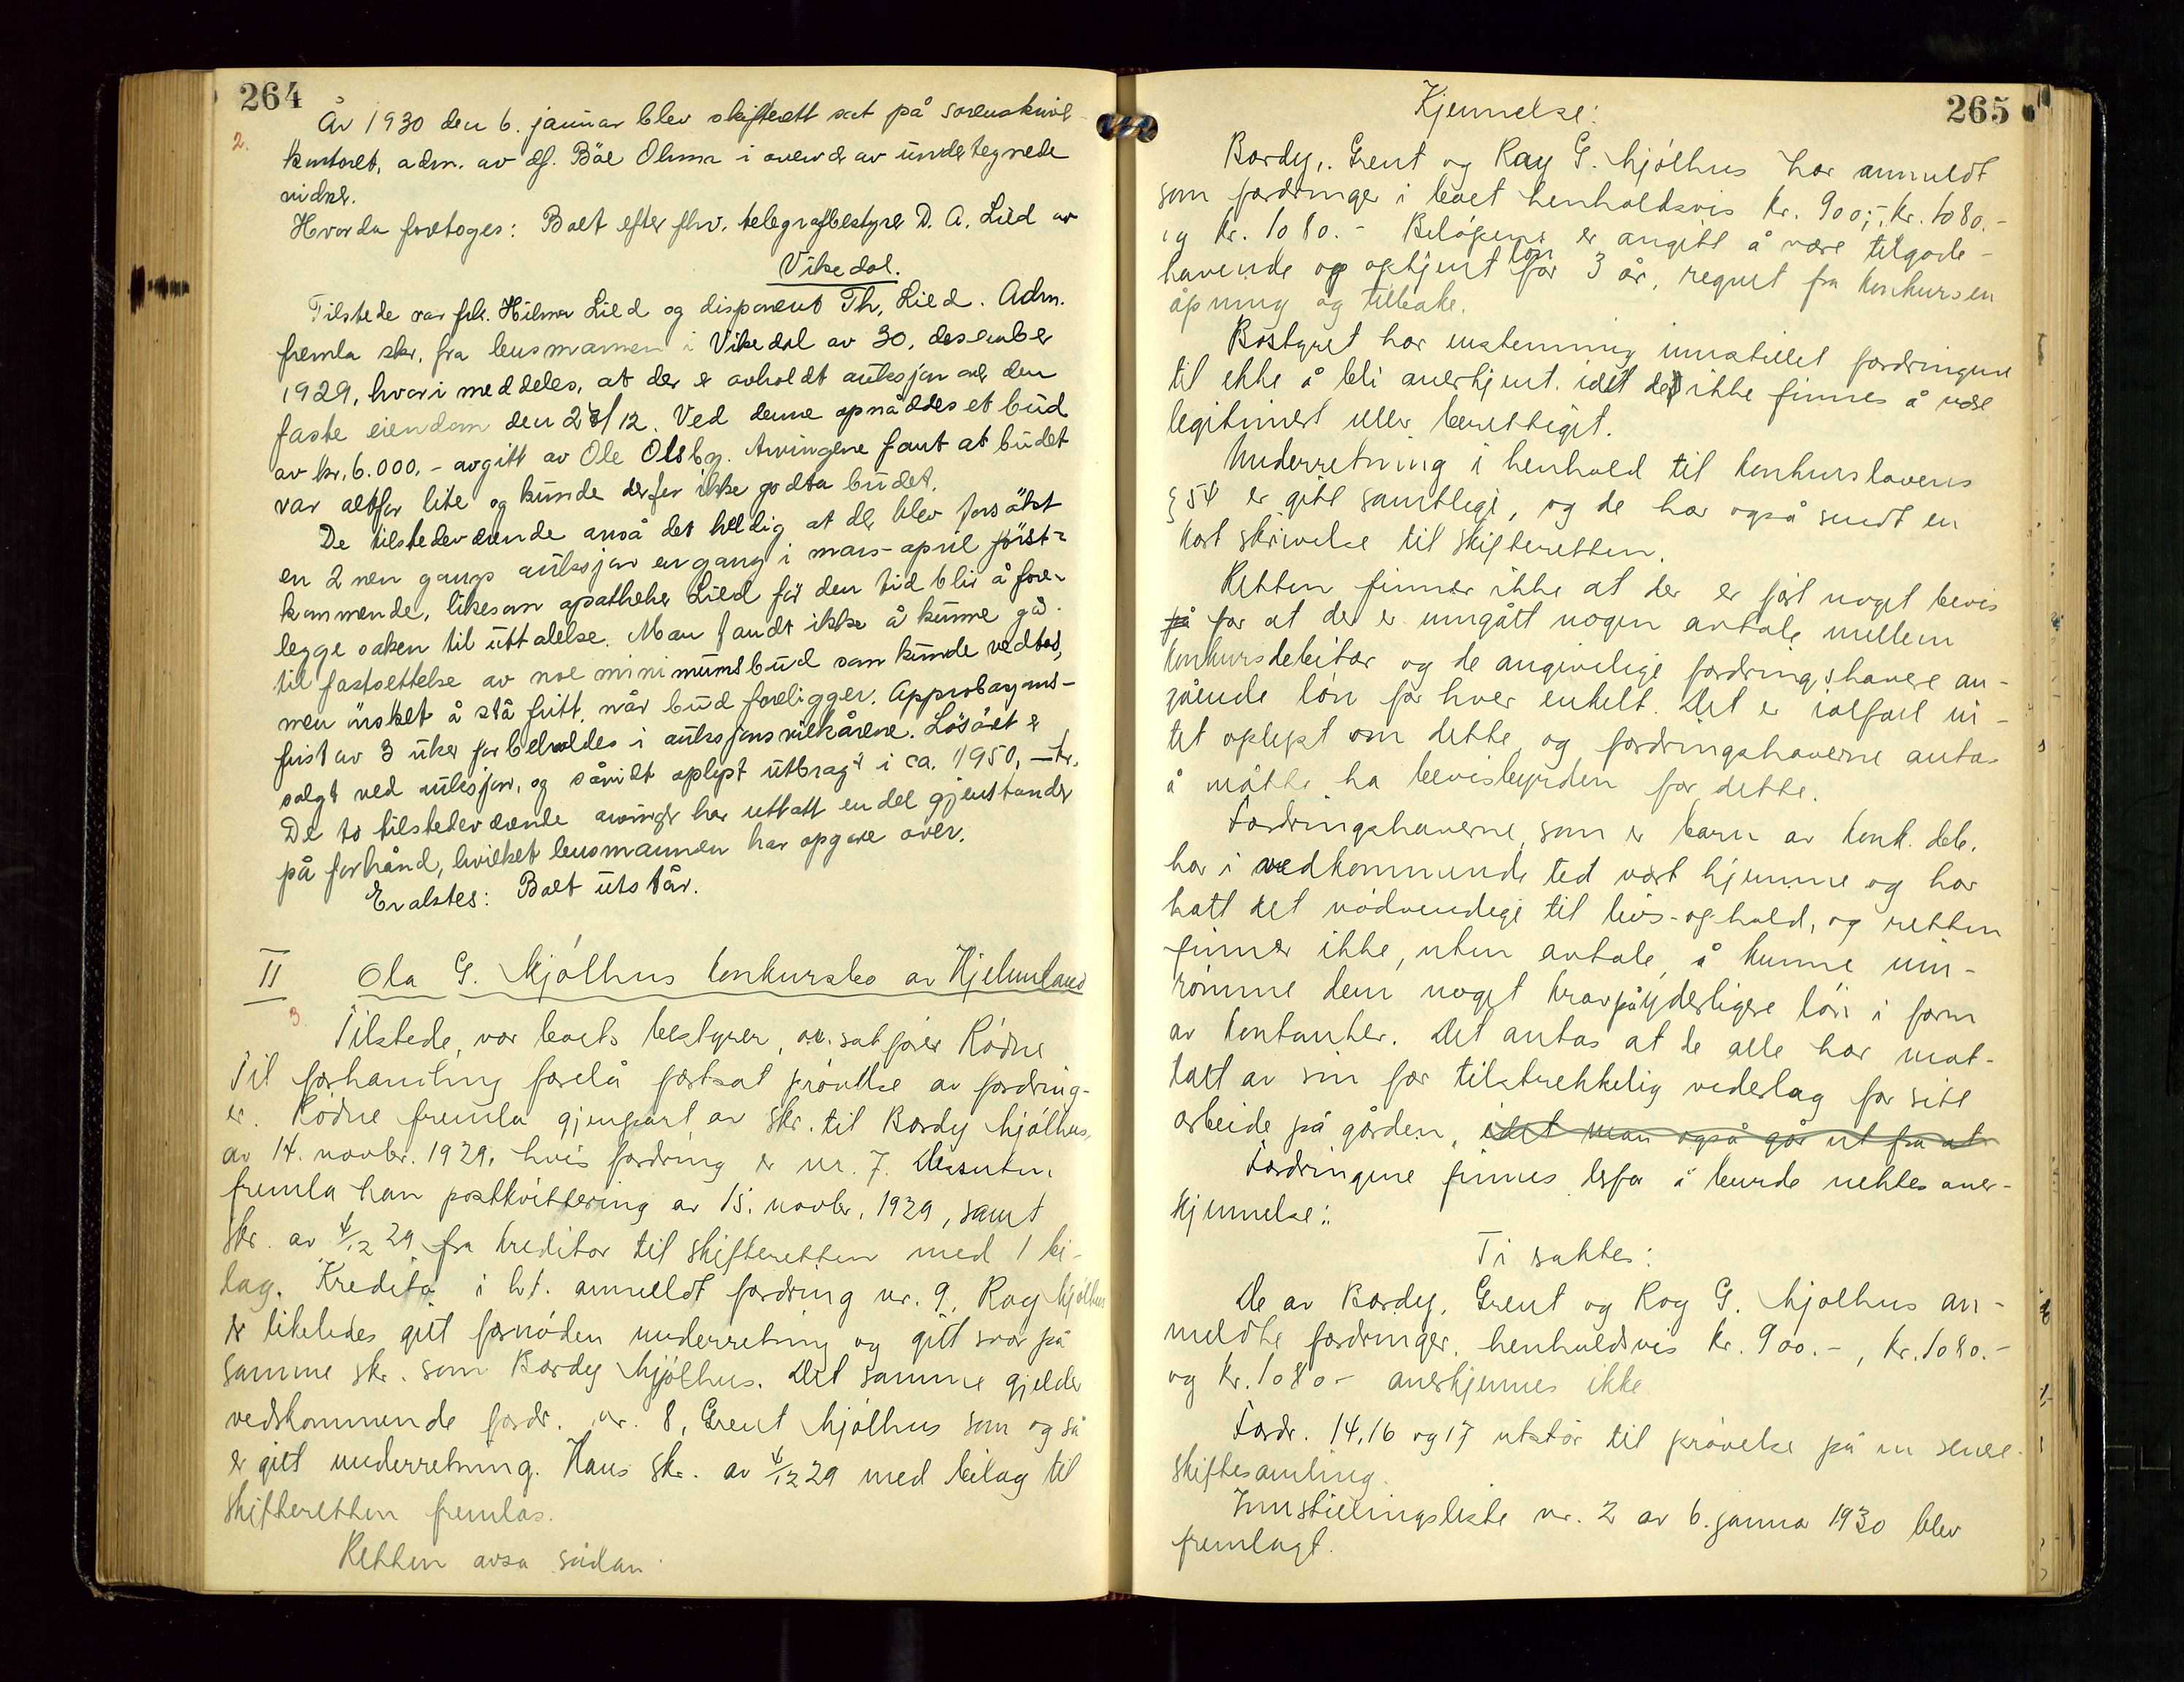 264
År 1930 den 6. januar blev skifterett sat på sorenskriver-
2.
kontoret, adm. av df. Bäe Olsma i overvær av undertegnede
vidner.
Hvorda foretoges: Boet efter fhv. telegrafbestyrer D. A. Lied av
Vikedal.
Tilstede var frk. Hilma Lied og disponent Th. Lied. Adm.
fremla skr. fra lensmannen i Vikedal av 30. desember
1929, hvori meddeles, at der er avholdt auksjon over den
faste eiendom den 28/12. Ved denne opnåddes et bud
av kr. 6.000.- avgitt av Ole Olsby. Arvingene fant at budet
var altfor lite og kunde derfor ikke godta budet.
De tilstedeværende anså det heldig at der blev forsökt
en 2nen gangs auksjon engang i mars-april först-
kommende, likesom apotheker Lied för den tid blir å fore-
legge saken til uttalelse. Man fandt ikke å kunne gå
til fastsettelse av noe minimumsbud som kunde vedtas,
men önsket å stå fritt, når bud foreligger. Approbasjons-
frist av 3 uker forbeholdes i auksjonsvilkårene. Lösöret er
solgt ved auksjon, og såvidt oplyst utbragt i ca. 1950,- kr.
De to tilstedeværende arvinger har uttatt en del gjenstander
på forhånd, hvilket lensmannen har opgave over.
Eralstes: Boet utstår.
II Ola G. Mjölhus konkursbo av Hjelmeland
3.
Tilstede var boets bestyrer, o.r. sakförer Rödne
Til forhandling forelå fortsat prövelse av fordring-
er. Rödne fremla gjenpart av skr. til Bordy Mjölhus,
av 14. novbr. 1929, hvis fordring er nr. 7. Dessuten
fremla han postkvittering av 15. novbr. 1929, samt
skr. av 4/12 29 fra kreditor til skifteretten med 1 bi-
lag. Kreditor i h.t. anmeldt fordring nr. 9, Ray Mjölhus
er likeledes gitt fornöden underretning og gitt svar på
samme skr. som Bordy Mjölhus. Det samme gjelder
vedkommende fordr. nr. 8, Grent Mjölhus som også
er gitt underretning. Hans skr. av 4/12 29 med bilag til
skifteretten fremlas.
Retten avsa sådan
265
Kjennelse:
Bordy, Grent og Ray G. Mjölhus har anmeldt
som fordringer i boet henholdsvis kr. 900,-, kr. 1080.-
og kr. 1080.- Belöpene er angitt å være tilgode-
havende og optjent lön for 3 år, regnet fra konkursen
åpning og tilbake.
Bostyret har enstemmig innstillet fordringene
til ikke å bli anerkjent, idet de ikke finnes å være
legitimert eller berettiget.
Underretning i henhold til konkurslovens
§ 54 er gitt samtlige, og de har også sendt en
kort skrivelse til skifteretten.
Retten finner ikke at der er fört noget bevis
på for at der er inngått nogen avtale mellem
konkursdebitor og de angivelige fordringshavere an-
gående lön for hver enkelt. Det er ialfall in-
tet oplyst om dette og fordringshaverne antas
å måtte ha bevisbyrden for dette.
Fordringshaverne, som er barn av konk. deb.
har i vedkommende tid vært hjemme og har
hatt det nödvendige til livs-ophold, og retten
finner ikke, uten avtale, å kunne inn-
römme dem noget krav på yderligere lön i form
av kontanter. Det antas at de alle har mot-
tatt av sin far tilstrekkelig vederlag for sitt
arbeide på gården, idet man også går ut fra at
Fordringene finnes derfor å burde nektes aner-
kjennelse:
Ti saktes:
De av Bordy, Grent og Roy G. Mjölhus an-
meldte fordringer, henholdsvis kr. 900.-, kr. 1080.-
og kr. 1080.- anerkjennes ikke
Fordr. 14, 16 og 17 utstår til prövelse på en senere
skiftesamling.
Innstillingsliste nr. 2 av 6. januar 1930 blev
fremlagt.